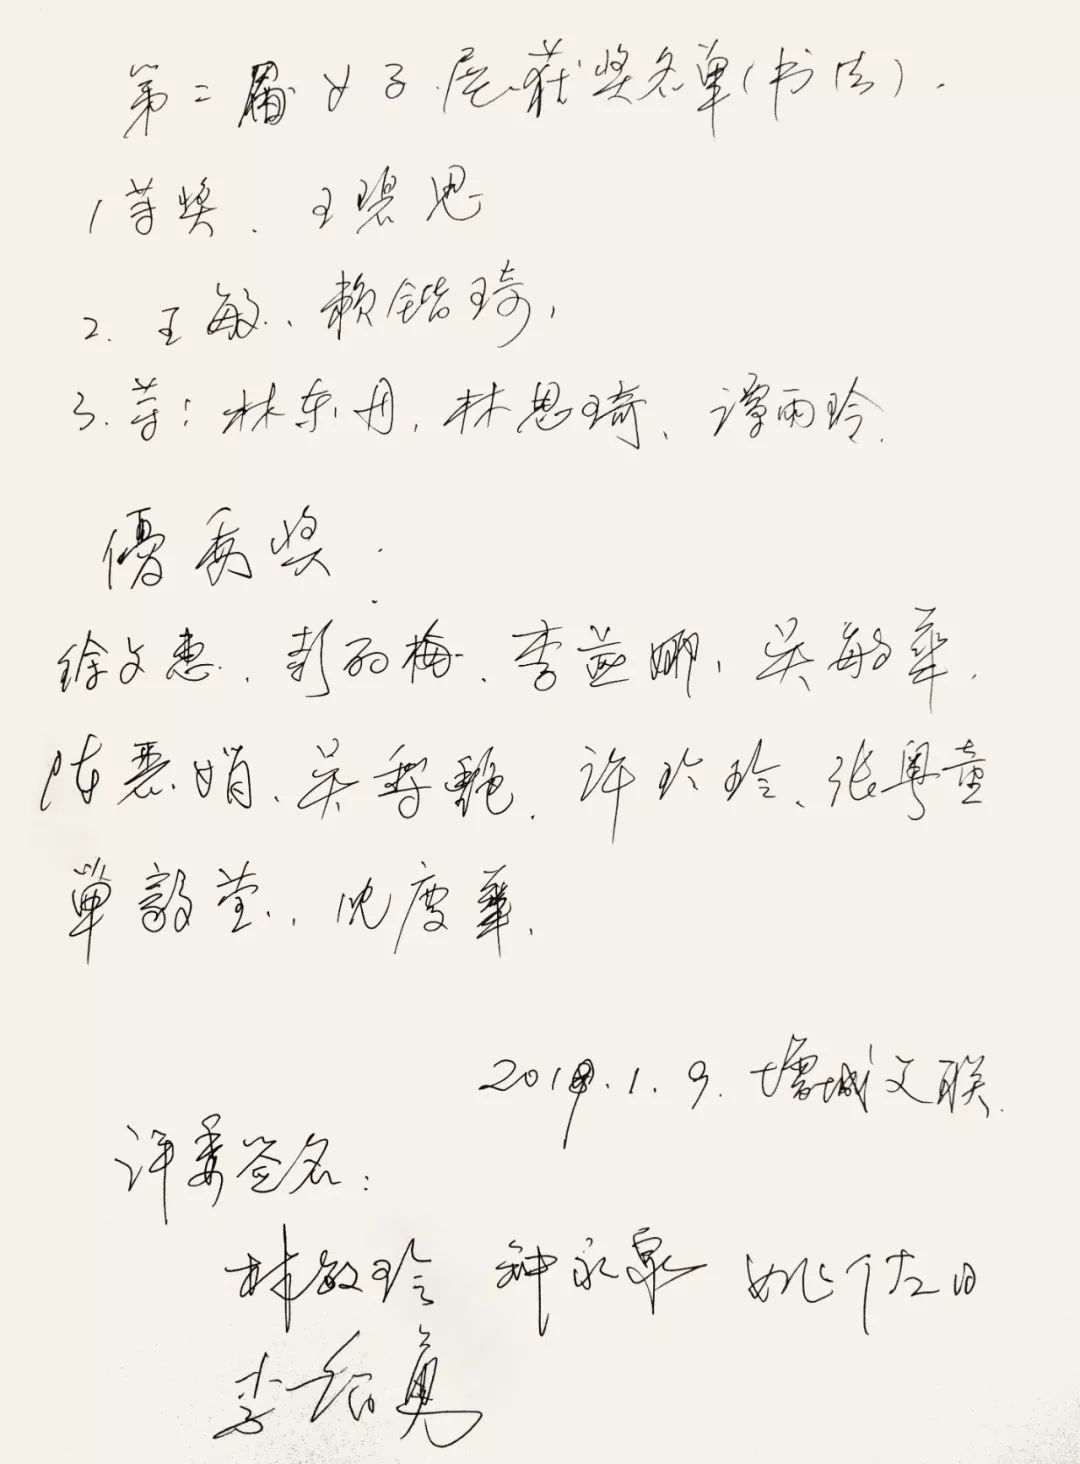 第二届女子展获奖名单(书法).
1等奖. 王碧思
2. 王敏、赖锴琦,
3.等: 林东丹, 林思琦、谭雨玲.
優秀奖.
徐文惠、彭丽梅、李益娜、吴敏華.
陈恶娟、吴黎艶、许玲玲、张粤童
單毅莹、沈度華.
2018.1.9. 增城文联.
评委签名:
林敏玲 钟永泉 姚佐日
李绍勇